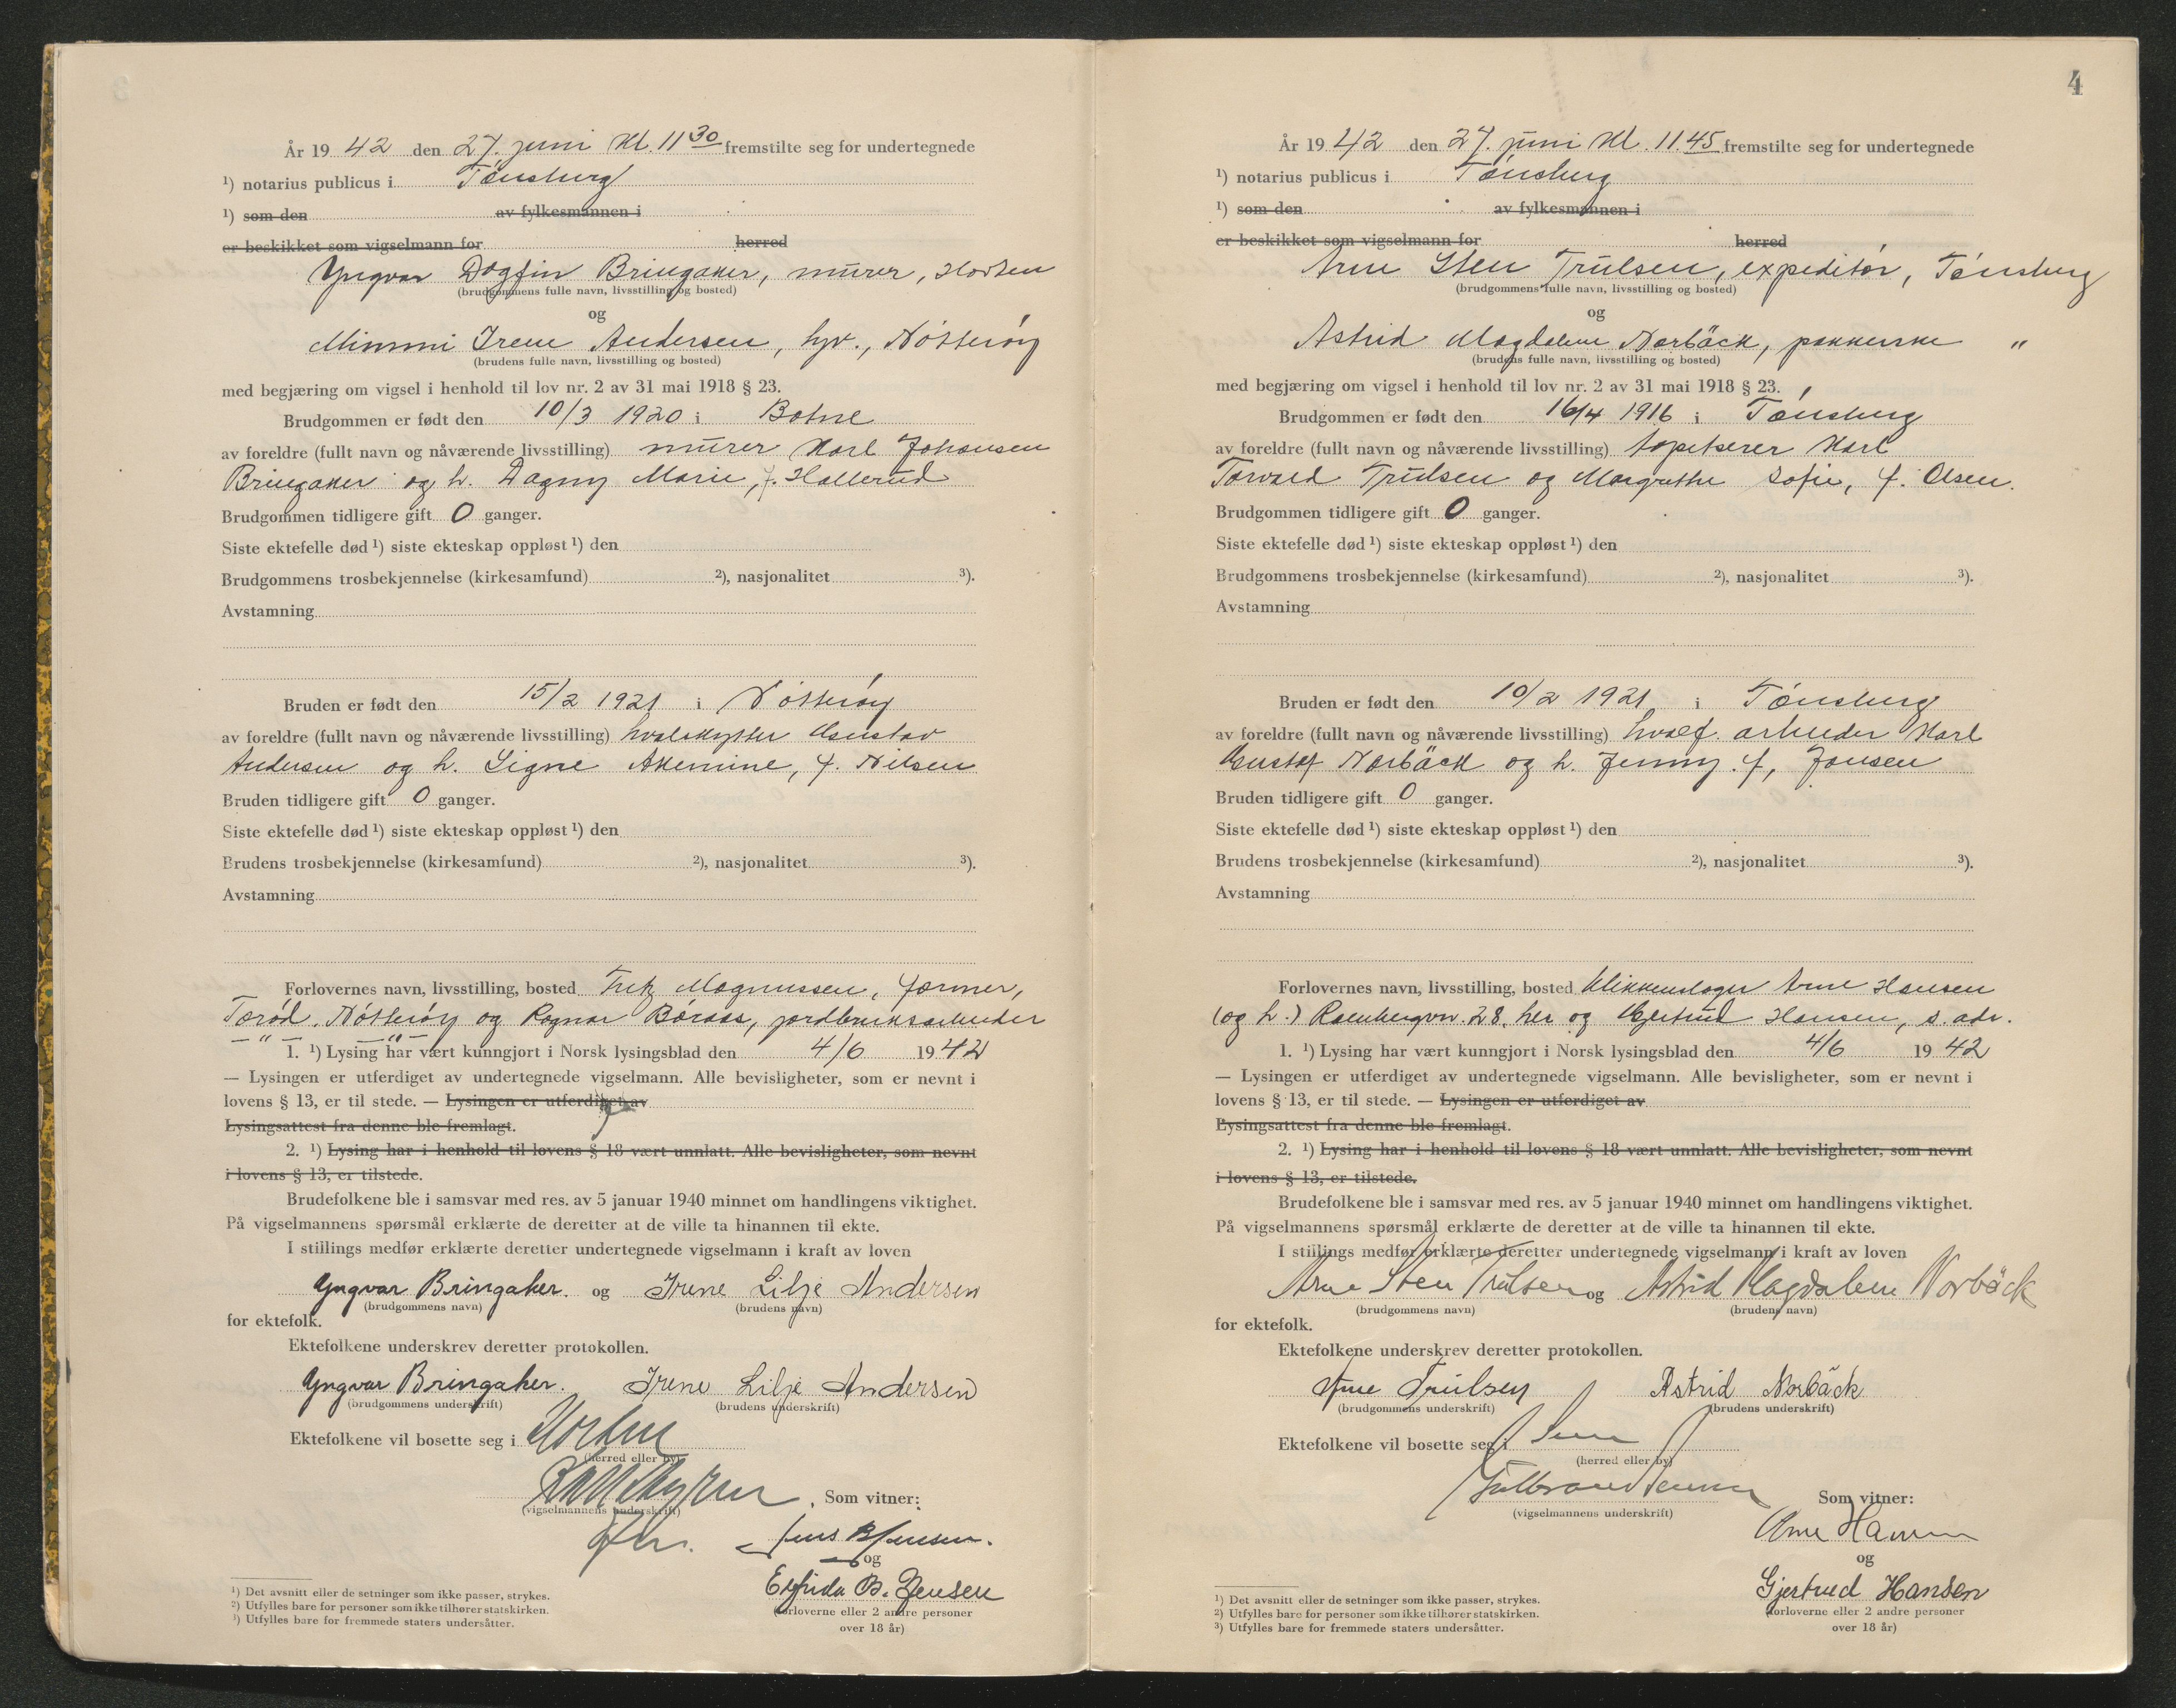 År 19 42 den 27. juni kl. 11 30 fremstilte seg for undertegnede
1) notarius publicus i Tønsberg
1) som den av fylkesmannen i
er beskikket som vigselmann for herred
Yngvar Dagfin Bringaker, murer, Horten
(brudgommens fulle navn, livsstilling og bosted)
og
Mimmi Irene Andersen, hjv., Nøtterøy
(brudens fulle navn, livsstilling og bosted)
med begjæring om vigsel i henhold til lov nr. 2 av 31 mai 1918 § 23.
Brudgommen er født den 10/3 1920 i Botne
av foreldre (fullt navn og nåværende livsstilling) murer Karl Johansen
Bringaker og h. Dagny Marie, f. Hallerud
Brudgommen tidligere gift 0 ganger.
Siste ektefelle død 1) siste ekteskap oppløst 1) den
Brudgommens trosbekjennelse (kirkesamfund) 2), nasjonalitet 3).
Avstamning
Bruden er født den 15/2 1921 i Nøtterøy
av foreldre (fullt navn og nåværende livsstilling) hvalskytter Gustav
Andersen og h. Signe , f. Nilsen
Bruden tidligere gift 0 ganger.
Siste ektefelle død 1) siste ekteskap oppløst 1) den
Brudens trosbekjennelse (kirkesamfund) 2), nasjonalitet 3).
Avstamning
Forlovernes navn, livsstilling, bosted Magnussen, former,
Torød, Nøtterøy og Ragnar Båraas, jordbruksarbeider
— " — — " —
1. 1) Lysing har vært kunngjort i Norsk lysingsblad den 4/6 19 42
— Lysingen er utferdiget av undertegnede vigselmann. Alle bevisligheter, som er nevnt i
lovens § 13, er til stede. — Lysingen er utferdiget av
Lysingsattest fra denne ble fremlagt.
2. 1) Lysing har i henhold til lovens § 18 vært unnlatt. Alle bevisligheter, som nevnt
i lovens § 13, er tilstede.
Brudefolkene ble i samsvar med res. av 5 januar 1940 minnet om handlingens viktighet.
På vigselmannens spørsmål erklærte de deretter at de ville ta hinannen til ekte.
I stillings medfør erklærte deretter undertegnede vigselmann i kraft av loven
Yngvar Bringaker. og Irene Lilje Andersen
(brudgommens navn) (brudens navn)
for ektefolk.
Ektefolkene underskrev deretter protokollen.
Yngvar Bringaker. Irene Lilje Andersen
(brudgommens underskrift) (brudens underskrift)
Ektefolkene vil bosette seg i Horten
(herred eller by)
Som vitner:
(vigselmannens underskrift)
Jens B Jensen.
og
Elfrida B. Jensen
(forloverne eller 2 andre personer
over 18 år)
1) Det avsnitt eller de setninger som ikke passer, strykes.
2) Utfylles bare for personer som ikke tilhører statskirken.
3) Utfylles bare for fremmede staters undersåtter.
4
År 19 42 den 27. juni kl. 11.45 fremstilte seg for undertegnede
1) notarius publicus i Tønsberg
1) som den av fylkesmannen i
er beskikket som vigselmann for herred
Arne Sten Trulsen, expeditør, Tønsberg
(brudgommens fulle navn, livsstilling og bosted)
og
Astrid Magdalene Norbäck, pakkerske "
(brudens fulle navn, livsstilling og bosted)
med begjæring om vigsel i henhold til lov nr. 2 av 31 mai 1918 § 23.
Brudgommen er født den 16/4 1916 i Tønsberg
av foreldre (fullt navn og nåværende livsstilling) tapetserer Karl
Torvald Trulsen og Margrethe Sofie, f. Olsen.
Brudgommen tidligere gift 0 ganger.
Siste ektefelle død 1) siste ekteskap oppløst 1) den
Brudgommens trosbekjennelse (kirkesamfund) 2), nasjonalitet 3).
Avstamning
Bruden er født den 10/2 1921 i Tønsberg
av foreldre (fullt navn og nåværende livsstilling) hvalf. arbeider Karl
Gustaf Norbäck og h. Jenny f. Jonsen
Bruden tidligere gift 0 ganger.
Siste ektefelle død 1) siste ekteskap oppløst 1) den
Brudens trosbekjennelse (kirkesamfund) 2), nasjonalitet 3).
Avstamning
Forlovernes navn, livsstilling, bosted blikkenslager Arne Hansen
(og h.) 28, her og Gjertrud Hansen, s. adr.
1. 1) Lysing har vært kunngjort i Norsk lysingsblad den 4/6 19 42
— Lysingen er utferdiget av undertegnede vigselmann. Alle bevisligheter, som er nevnt i
lovens § 13, er til stede. — Lysingen er utferdiget av
Lysingsattest fra denne ble fremlagt.
2. 1) Lysing har i henhold til lovens § 18 vært unnlatt. Alle bevisligheter, som nevnt
i lovens § 13, er tilstede.
Brudefolkene ble i samsvar med res. av 5 januar 1940 minnet om handlingens viktighet.
På vigselmannens spørsmål erklærte de deretter at de ville ta hinannen til ekte.
I stillings medfør erklærte deretter undertegnede vigselmann i kraft av loven
Arne Sten Trulsen og Astrid Magdalene Norbäck
(brudgommens navn) (brudens navn)
for ektefolk.
Ektefolkene underskrev deretter protokollen.
Arne Trulsen Astrid Norbäck
(brudgommens underskrift) (brudens underskrift)
Ektefolkene vil bosette seg i
(herred eller by)
Som vitner:
(vigselmannens underskrift)
Arne Hansen
og
Gjertrud Hansen
(forloverne eller 2 andre personer
over 18 år)
1) Det avsnitt eller de setninger som ikke passer, strykes.
2) Utfylles bare for personer som ikke tilhører statskirken.
3) Utfylles bare for fremmede staters undersåtter.